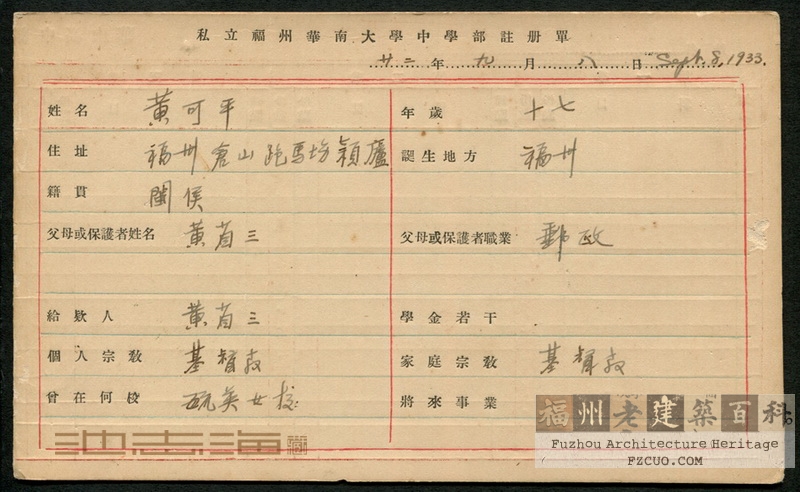 私立福州華南大學中學部註册單
廿二年九月八日 Sept. 8, 1933.
姓名 黃可平 年歲 十七
住址 福州倉山跑馬塲穎廬 誕生地方 福州
籍貫 閩侯
父母或保護者姓名 黃首三 父母或保護者職業 郵政
給欵人 黃首三 學金若干
個人宗教 基督教 家庭宗教 基督教
曾在何校 甄英女校 將來事業
池志海
福州老建築百科
Fuzhou Architecture Heritage
FZCUO.COM